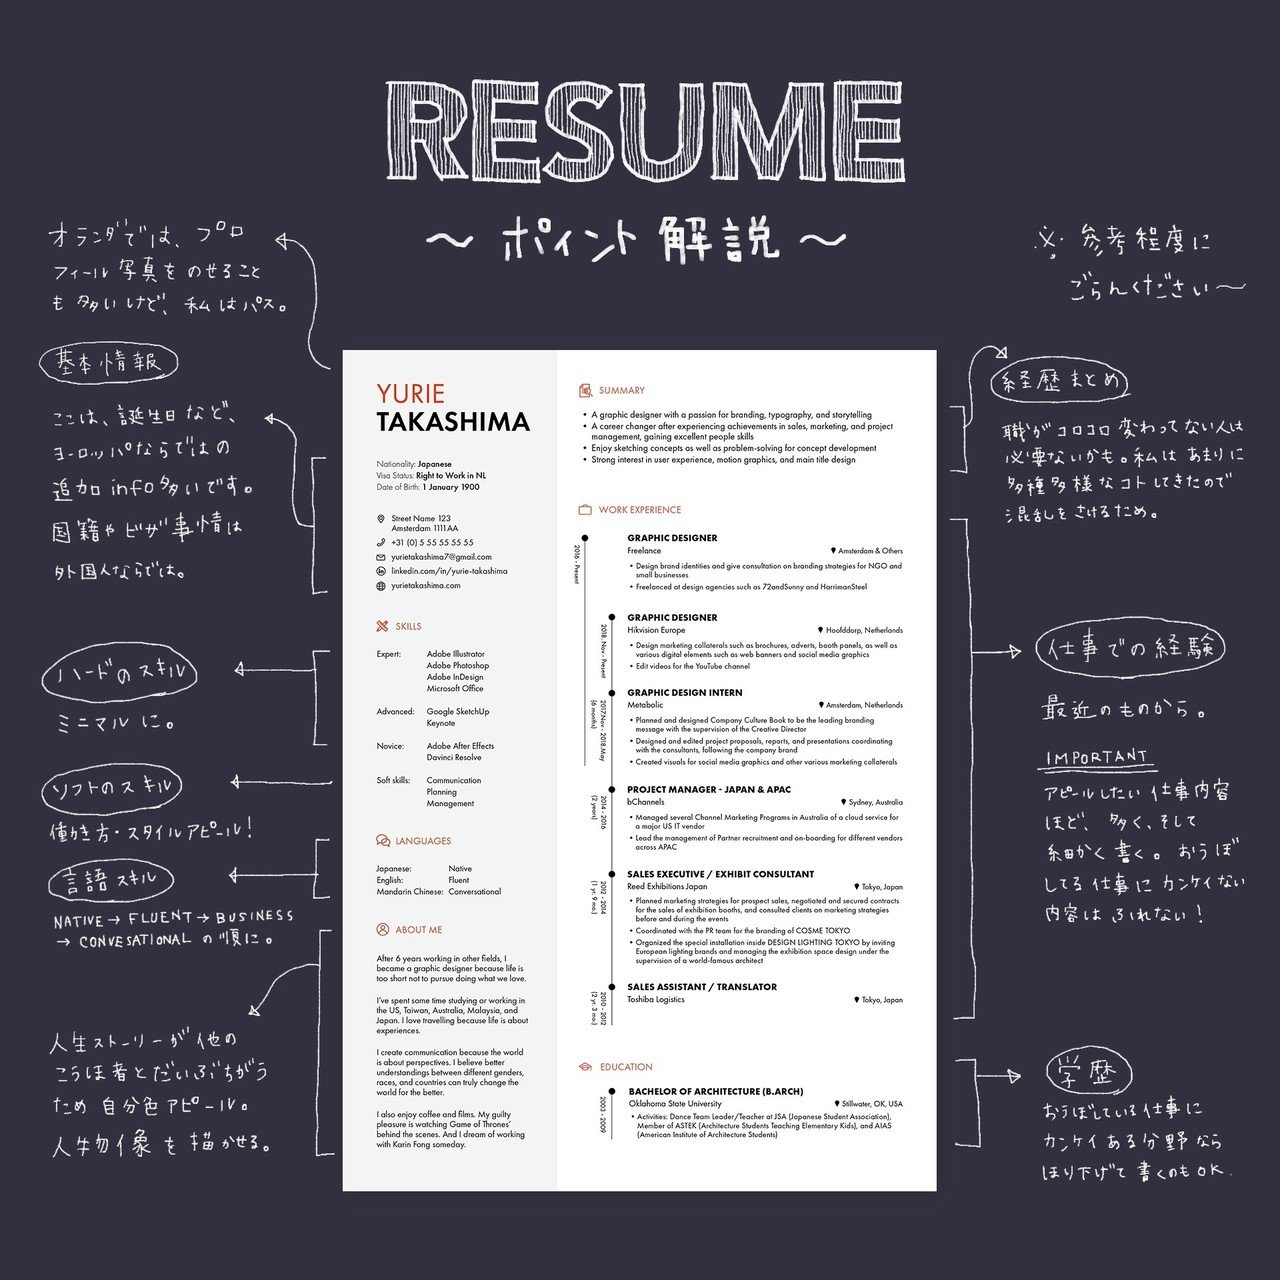 RESUME
〜 ポイント解説 〜
※ 参考程度に
ごらんください〜
オランダでは、プロ
フィール写真をのせること
も多いけど、私はパス。
基本情報
ここは、誕生日など、
ヨーロッパならではの
追加info多いです。
国籍やビザ事情は
外国人ならでは。
ハードのスキル
ミニマルに。
ソフトのスキル
働き方・スタイルアピール！
言語スキル
NATIVE → FLUENT → BUSINESS
→ CONVESATIONAL の順に。
人生ストーリーが他の
こうほ者とだいぶちがう
ため自分色アピール。
人物像を描かせる。
YURIE
TAKASHIMA
Nationality: Japanese
Visa Status: Right to Work in NL
Date of Birth: 1 January 1900
Street Name 123
Amsterdam 1111AA
+31 (0) 5 55 55 55 55
yurietakashima7@gmail.com
linkedin.com/in/yurie-takashima
yurietakashima.com
SKILLS
Expert: Adobe Illustrator
Adobe Photoshop
Adobe InDesign
Microsoft Office
Advanced: Google SketchUp
Keynote
Novice: Adobe After Effects
Davinci Resolve
Soft skills: Communication
Planning
Management
LANGUAGES
Japanese: Native
English: Fluent
Mandarin Chinese: Conversational
ABOUT ME
After 6 years working in other fields, I
became a graphic designer because life is
too short not to pursue doing what we love.
I've spent some time studying or working in
the US, Taiwan, Australia, Malaysia, and
Japan. I love travelling because life is about
experiences.
I create communication because the world
is about perspectives. I believe better
understandings between different genders,
races, and countries can truly change the
world for the better.
I also enjoy coffee and films. My guilty
pleasure is watching Game of Thrones'
behind the scenes. And I dream of working
with Karin Fong someday.
SUMMARY
• A graphic designer with a passion for branding, typography, and storytelling
• A career changer after experiencing achievements in sales, marketing, and project
management, gaining excellent people skills
• Enjoy sketching concepts as well as problem-solving for concept development
• Strong interest in user experience, motion graphics, and main title design
WORK EXPERIENCE
2016 - Present
GRAPHIC DESIGNER
Freelance Amsterdam & Others
• Design brand identities and give consultation on branding strategies for NGO and
small businesses
• Freelanced at design agencies such as 72andSunny and HarrimanSteel
2018.Nov - Present
GRAPHIC DESIGNER
Hikvision Europe Hoofddorp, Netherlands
• Design marketing collaterals such as brochures, adverts, booth panels, as well as
various digital elements such as web banners and social media graphics
• Edit videos for the YouTube channel
2017.Nov - 2018.May
(6 months)
GRAPHIC DESIGN INTERN
Metabolic Amsterdam, Netherlands
• Planned and designed Company Culture Book to be the leading branding
message with the supervision of the Creative Director
• Designed and edited project proposals, reports, and presentations coordinating
with the consultants, following the company brand
• Created visuals for social media graphics and other various marketing collaterals
2014 - 2016
(2 years)
PROJECT MANAGER - JAPAN & APAC
bChannels Sydney, Australia
• Managed several Channel Marketing Programs in Australia of a cloud service for
a major US IT vendor
• Lead the management of Partner recruitment and on-boarding for different vendors
across APAC
2012 - 2014
(1 yr. 9 mo.)
SALES EXECUTIVE / EXHIBIT CONSULTANT
Reed Exhibitions Japan Tokyo, Japan
• Planned marketing strategies for prospect sales, negotiated and secured contracts
for the sales of exhibition booths, and consulted clients on marketing strategies
before and during the events
• Coordinated with the PR team for the branding of COSME TOKYO
• Organized the special installation inside DESIGN LIGHTING TOKYO by inviting
European lighting brands and managing the exhibition space design under the
supervision of a world-famous architect
2010 - 2012
(2 yr. 3 mo.)
SALES ASSISTANT / TRANSLATOR
Toshiba Logistics Tokyo, Japan
EDUCATION
2003 - 2009
BACHELOR OF ARCHITECTURE (B.ARCH)
Oklahoma State University Stillwater, OK, USA
• Activities: Dance Team Leader/Teacher at JSA (Japanese Student Association),
Member of ASTEK (Architecture Students Teaching Elementary Kids), and AIAS
(American Institute of Architecture Students)
経歴まとめ
職がコロコロ変わってない人は
必要ないかも。私はあまりに
多種多様なコトしてきたので
混乱をさけるため。
仕事での経験
最近のものから。
IMPORTANT
アピールしたい仕事内容
ほど、多く、そして
細かく書く。おうぼ
してる仕事にカンケイない
内容はふれない！
学歴
おうぼしている仕事に
カンケイある分野なら
ほり下げて書くのもOK.